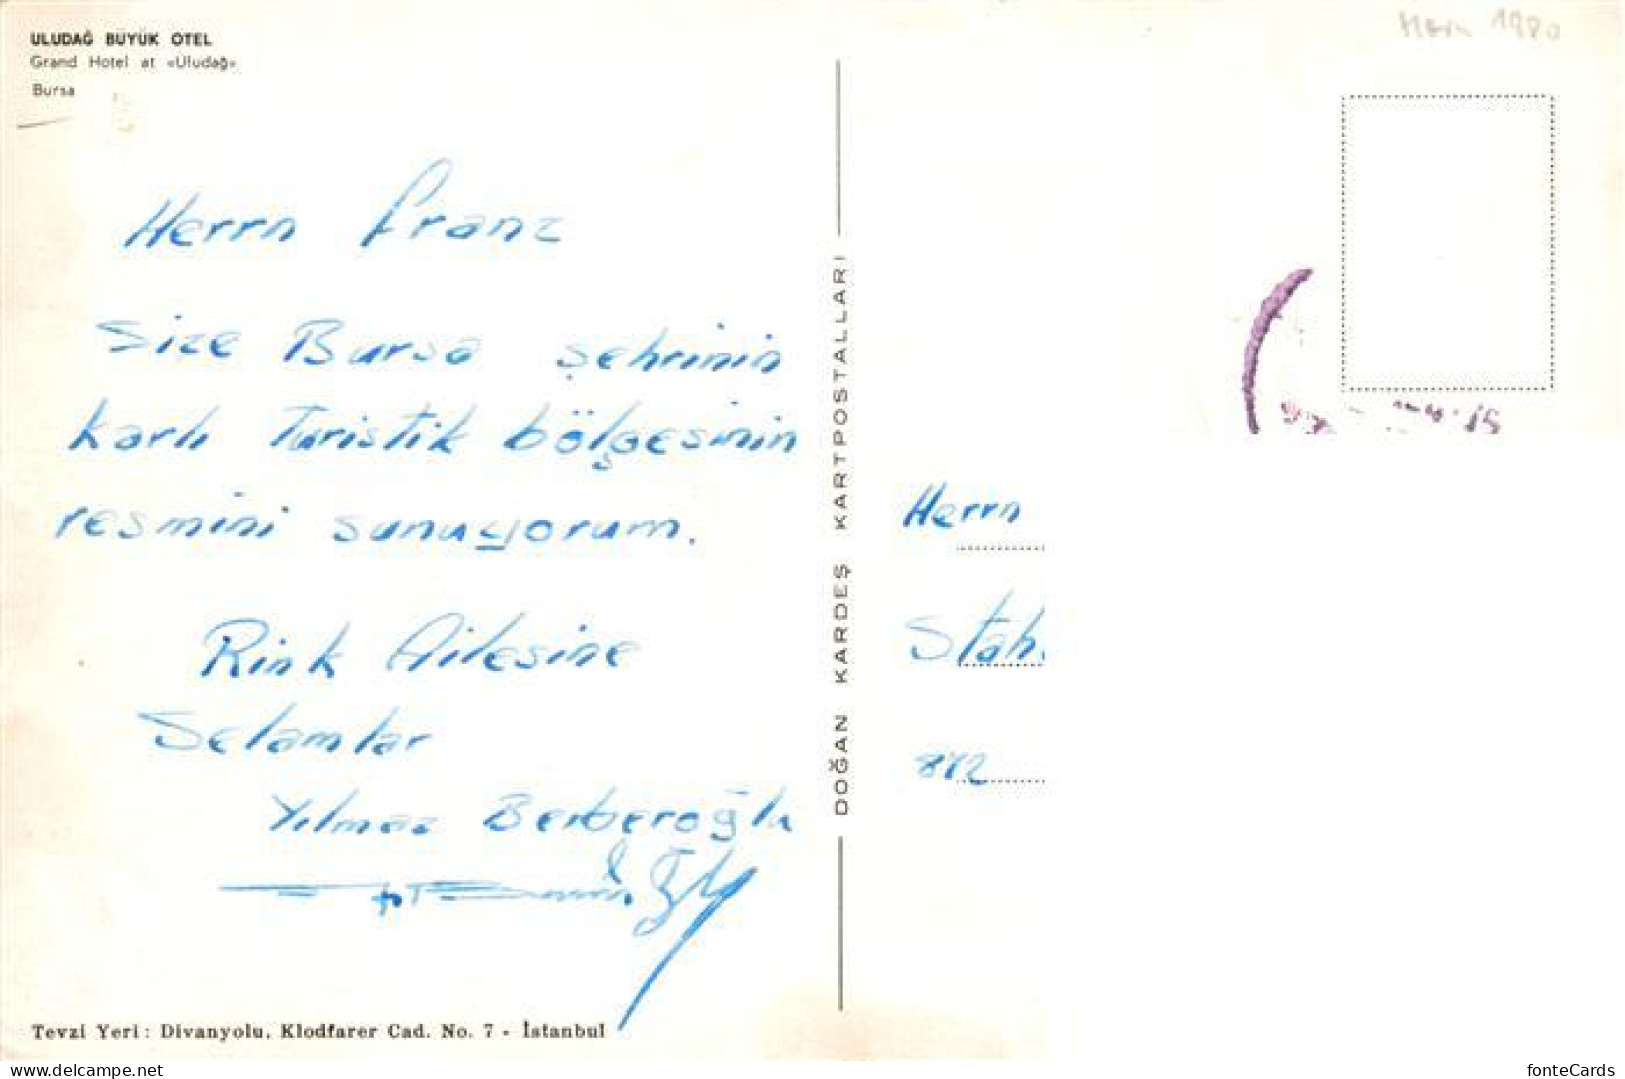 ULUDAĞ BÜYÜK OTEL
Grand Hotel at «Uludağ»
Bursa
Herrn Franz
Size Bursa şehrinin
karlı Turistik bölgesinin
resmini sunuyorum.
Rink Ailesine
Selamlar
Yılmaz Berberoğlu
Tevzi Yeri : Divanyolu, Klodfarer Cad. No. 7 - İstanbul
DOĞAN KARDEŞ KARTPOSTALLARI
1980
Herrn
Stah
872
fonteCards